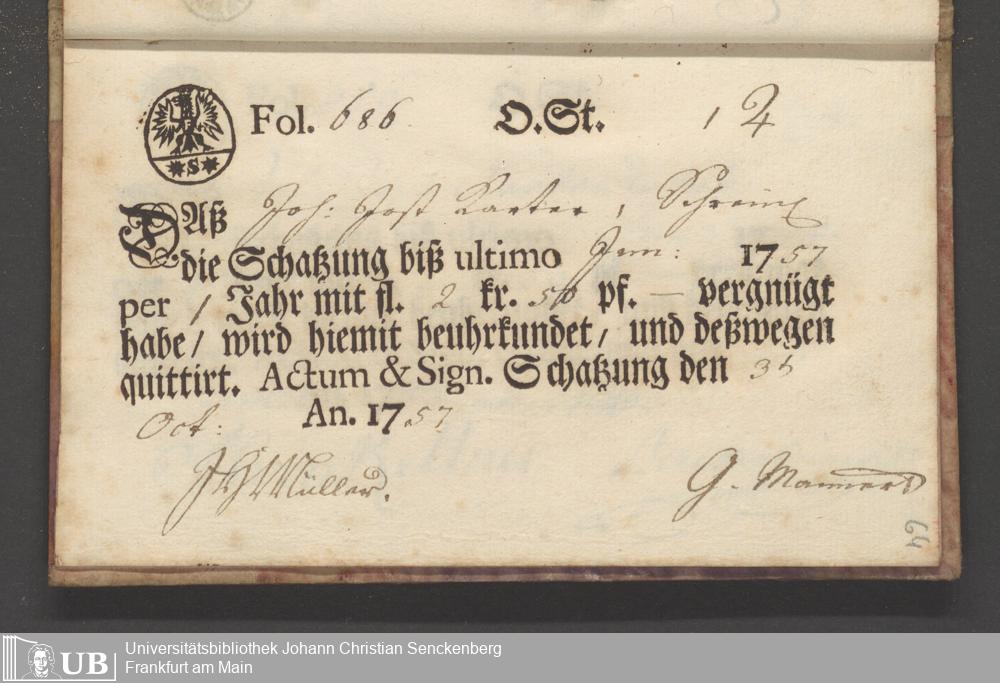 Fol. 686 O.St. 1 2
S
DAß Joh: Jost Karter, Schrein
die Schatzung biß ultimo Jun: 1757
per 1 Jahr mit fl. 2 kr. 50 pf. — vergnügt
habe / wird hiemit beuhrkundet / und deßwegen
quittirt. Actum & Sign. Schatzung den
Oct: An. 1757
JHMüller. G. Manner
64
UB Universitätsbibliothek Johann Christian Senckenberg
Frankfurt am Main